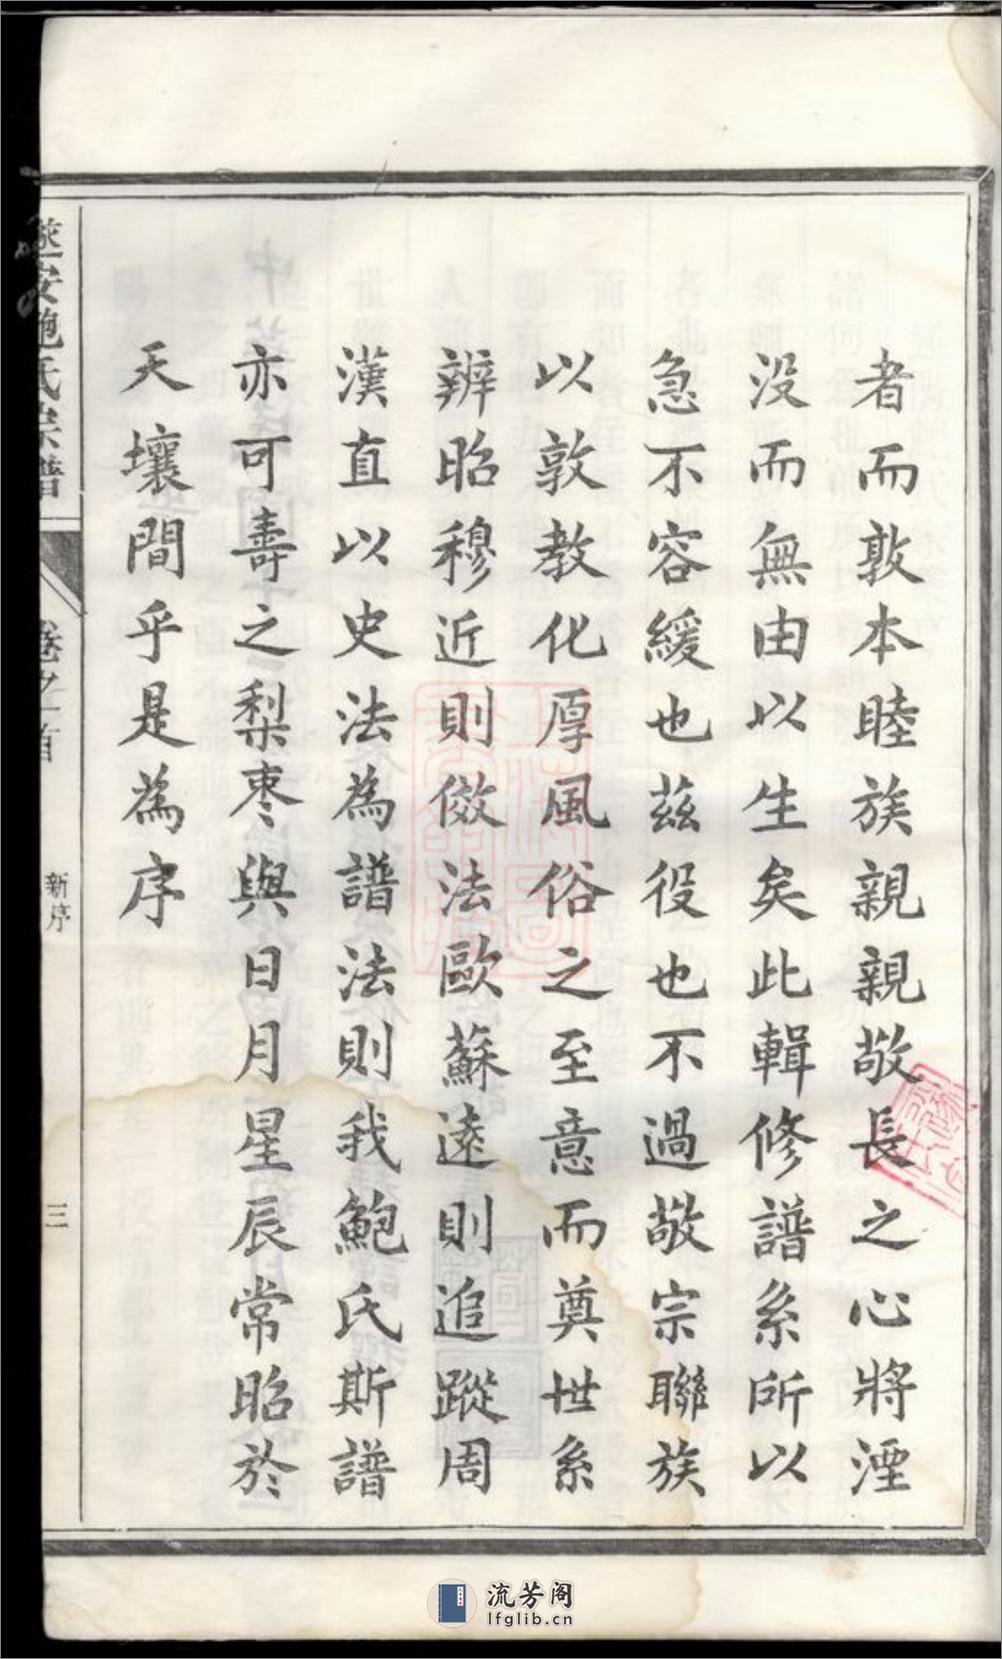 者而敦本睦族親親敬長之心將湮
没而無由以生矣此輯修譜系所以
急不容緩也茲役也不過敬宗聯族
以敦教化厚風俗之至意而奠世系
辨昭穆近則倣法歐蘇遠則追蹤周
漢直以史法為譜法則我鮑氏斯譜
亦可壽之梨枣與日月星辰常昭於
天壤間乎是為序
遂安鮑氏宗譜
卷之首
新序
三
流芳阁
lfglib.cn